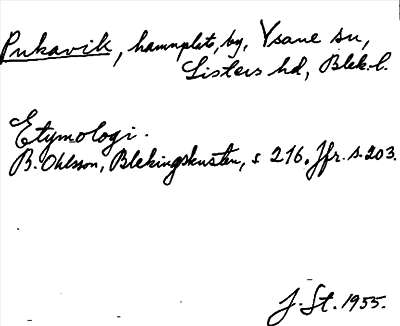 Pukavik, hamnplats, by, Ysane sn,
Listers hd, Blek. l.
Etymologi.
B. Ohlsson, Blekingskusten, s 216. Jfr. s. 203.
J. St. 1955.